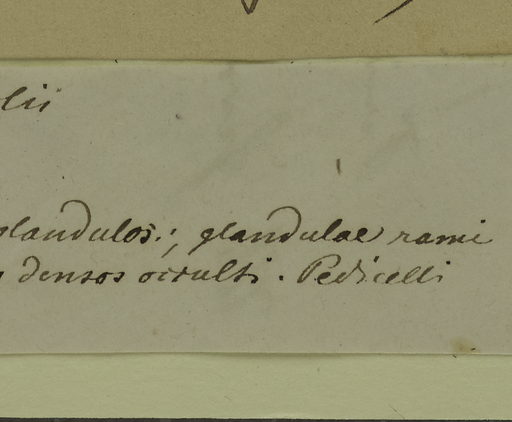 lii
glandulos:; glandulae rami
densos occulti. Pedicelli